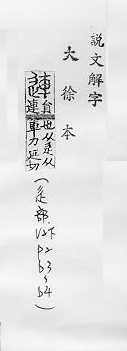 說文解字
大徐本
連 員連也从辵从
車力延切
(辵部
12下
p2
b3
b4)